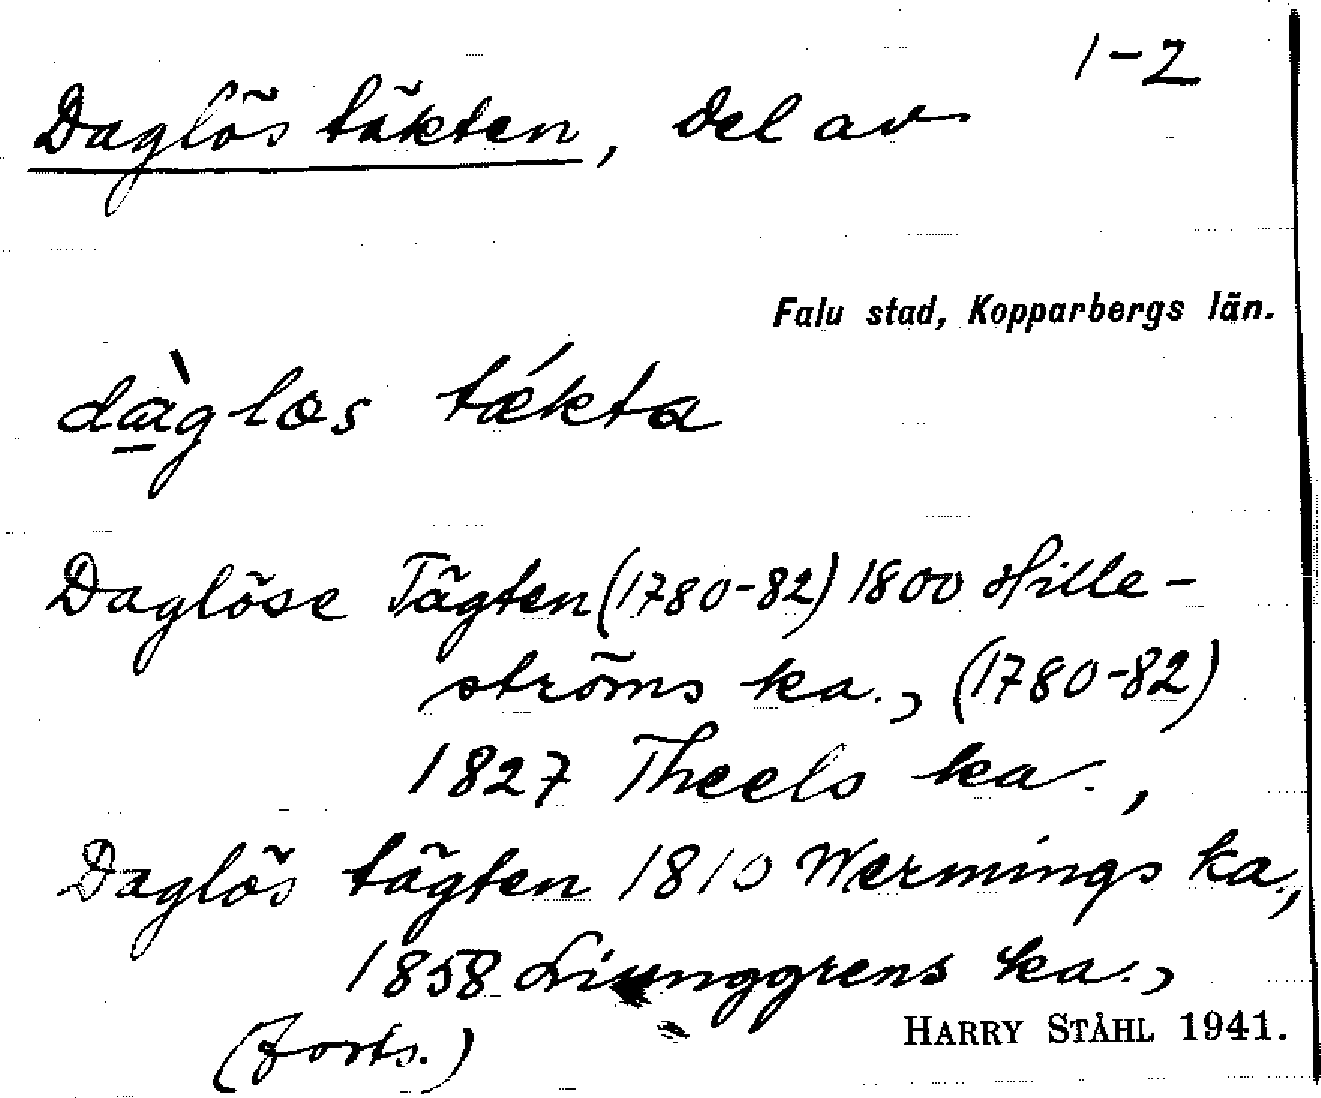 1-2
Daglös täkten, del av
Falu stad, Kopparbergs län.
dàglœs tǽkta
Daglöse Tägten (1780-82) 1800 Hille-
ströms ka., (1780-82)
1827 Theels ka.,
Daglös tägten 1810 Wermings ka.,
1858 Liunggrens ka.,
(forts.)
HARRY STÅHL 1941.